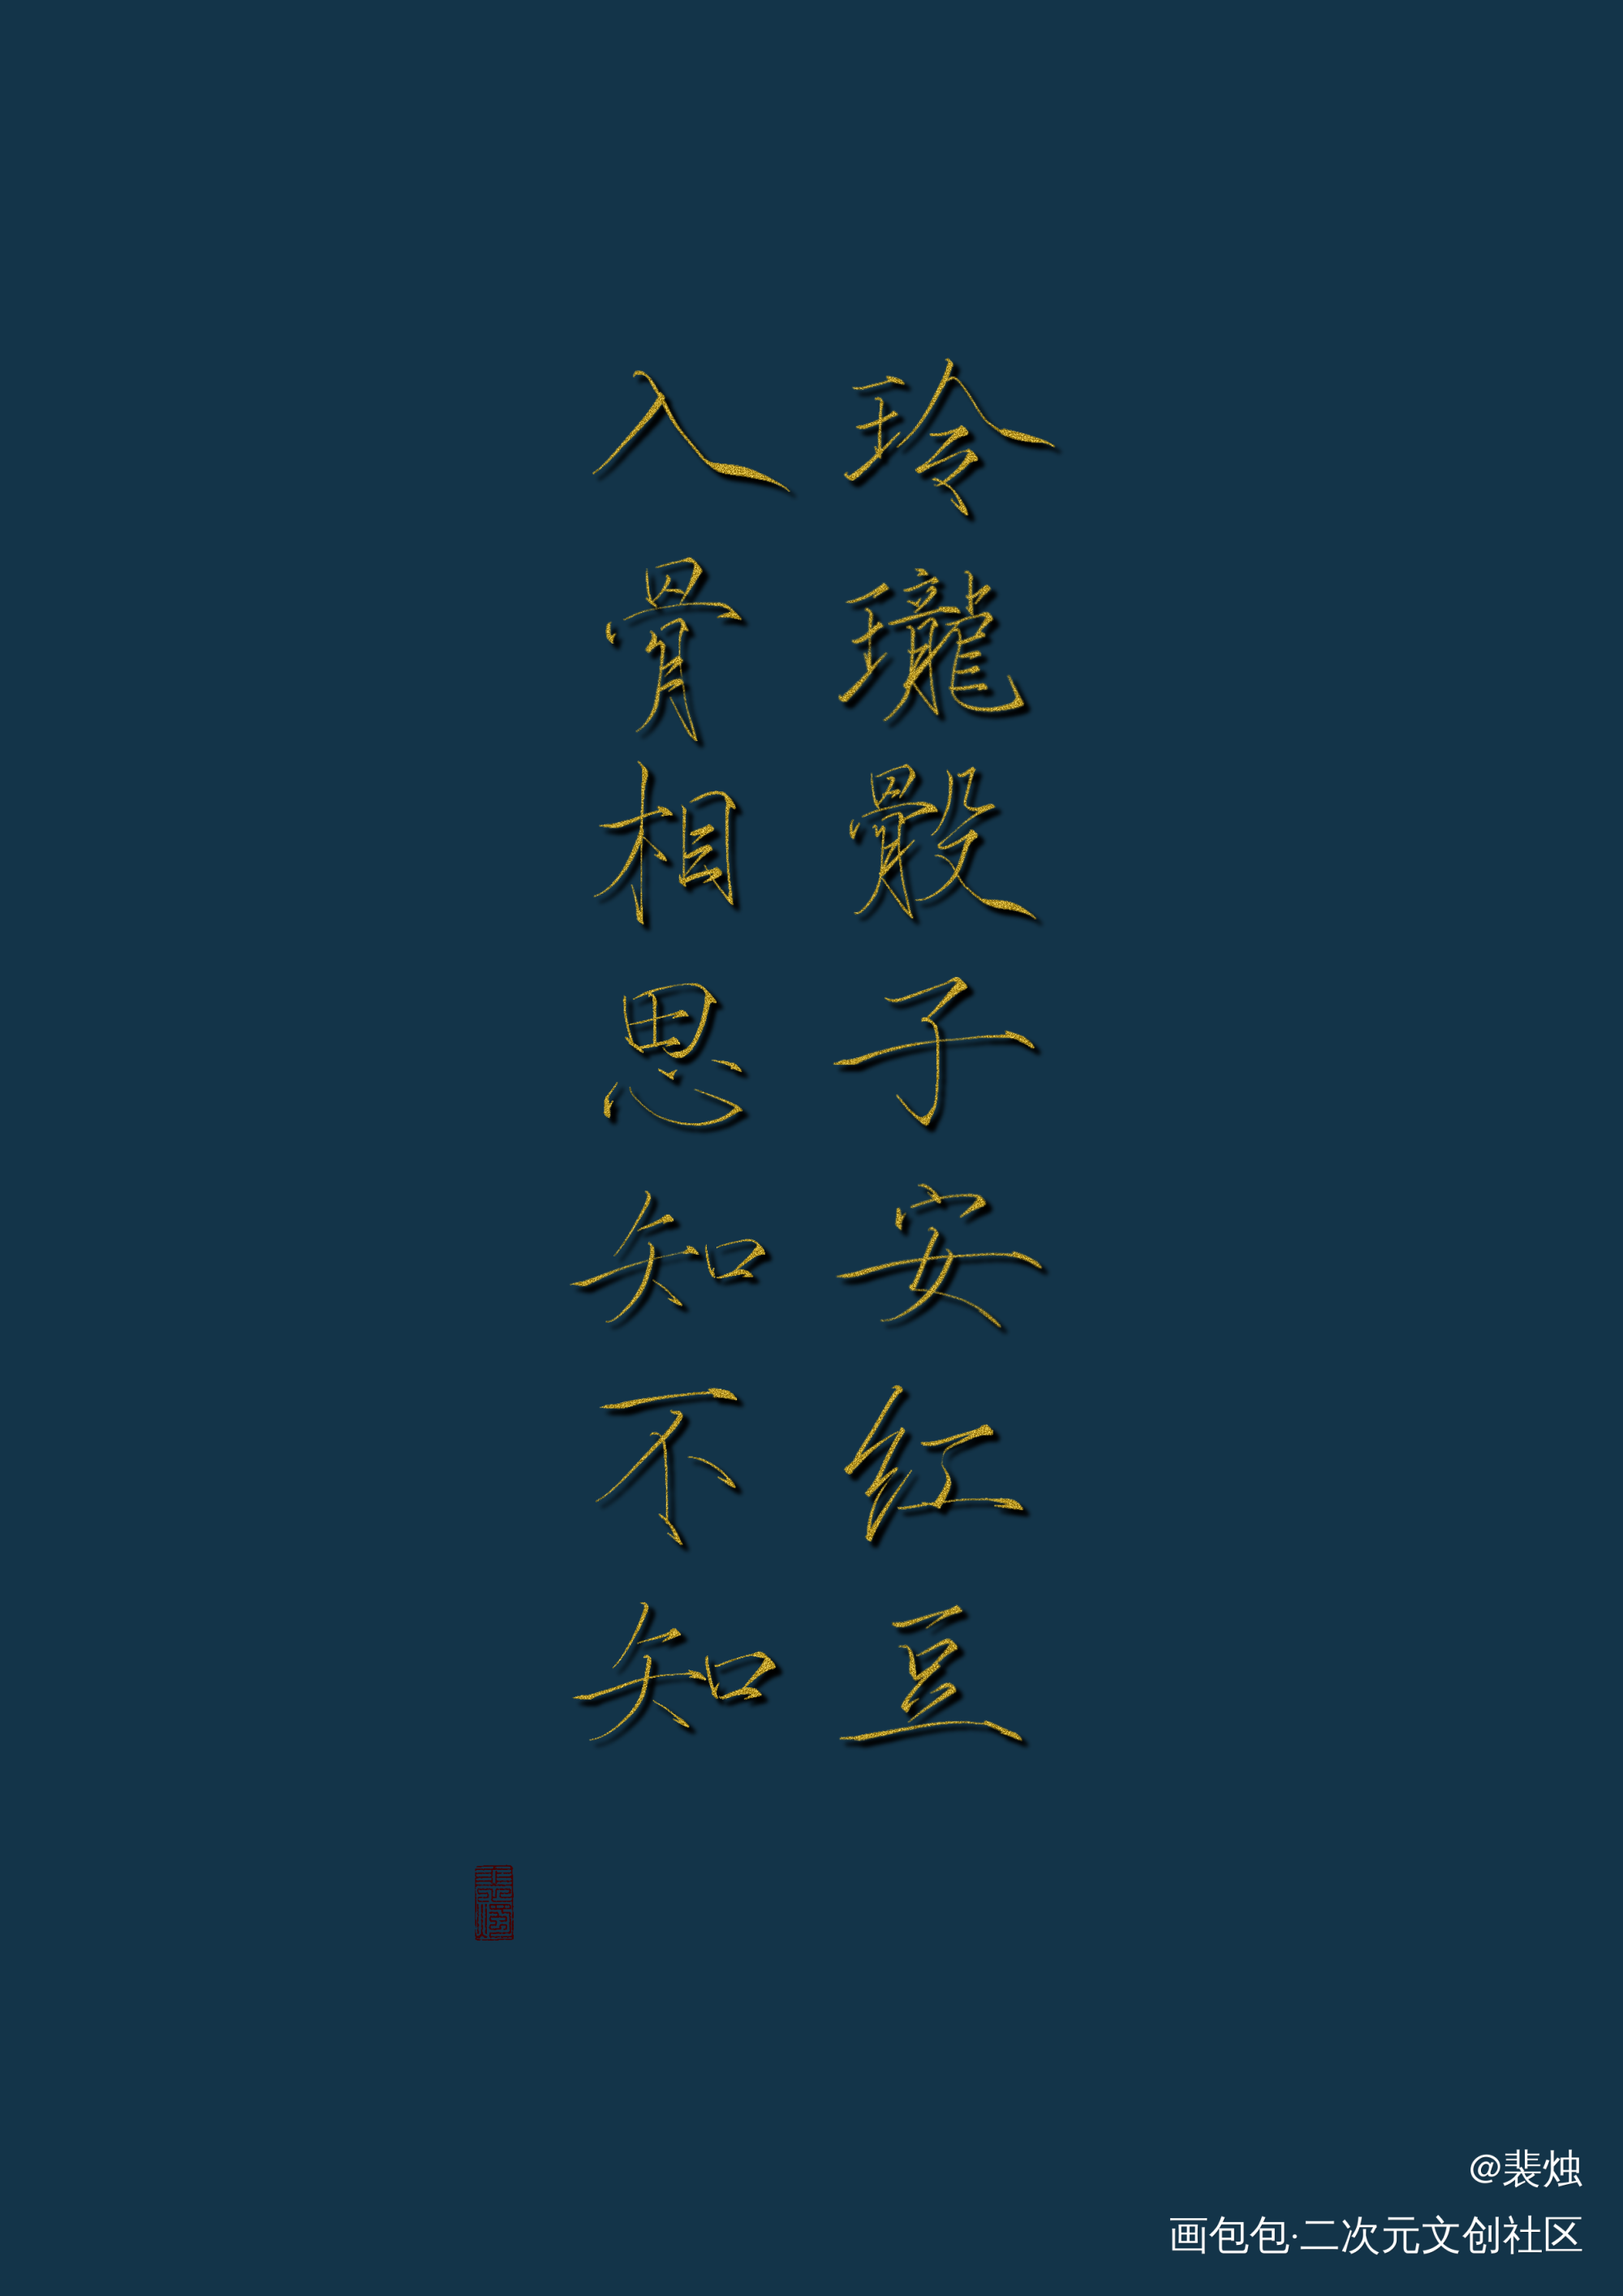 玲瓏骰子安红豆
入骨相思知不知
裴烛
@裴烛
画包包·二次元文创社区